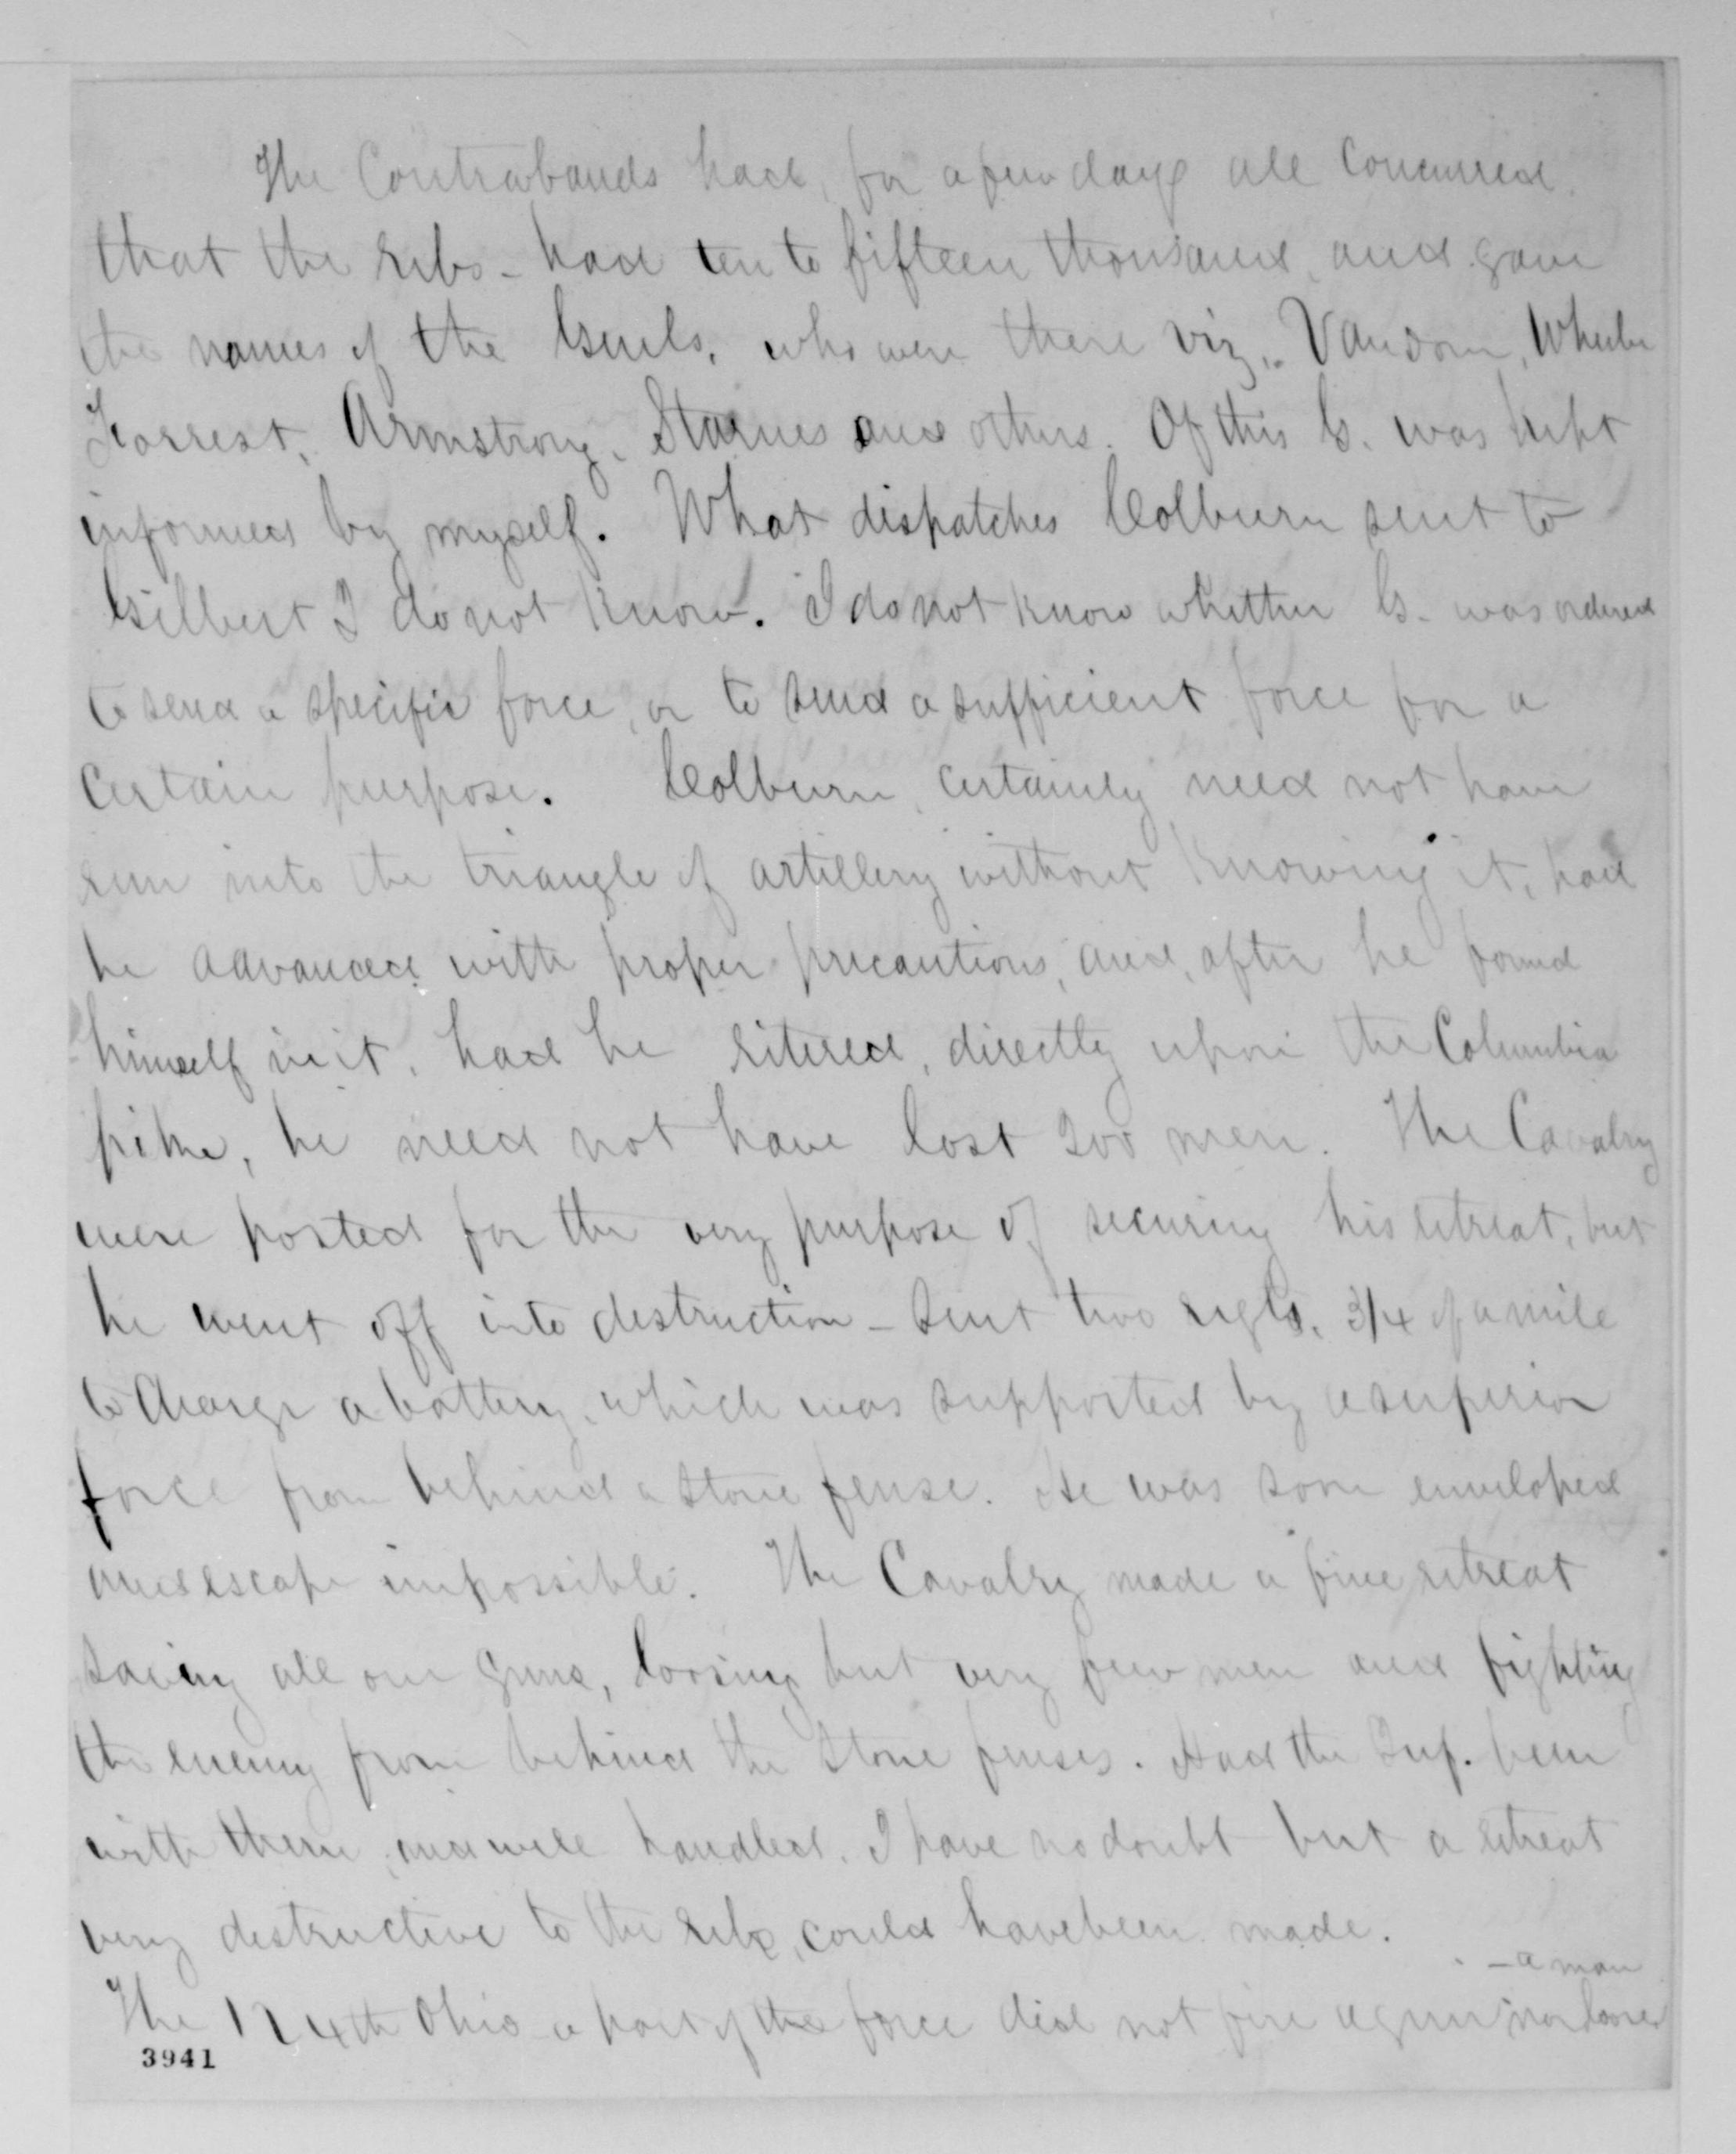 The Contrabands had, for a few days all concurred
that the rebs - had ten to fifteen thousand, and gave
the names of the Genls. who were there viz., Vandorn, Wheeler
Forrest, Armstrong, Starnes and others. Of this G. was kept
informed by myself. What dispatches Colburn sent to
Gilbert I do not know. I do not know whether G. was ordered
to send a specific force, or to send a sufficient force for a
certain purpose. Colburn, certainly need not have
run into the triangle of artillery without knowing it, had
he advanced with proper precautions, and, after he found
himself in it, had he retired, directly upon the Columbia
pike, he need not have lost 200 men. The Cavalry
were posted for the very purpose of securing his retreat, but
he went off into destruction - Sent two regts, 3/4 of a mile
to charge a battery, which was supported by a superior
force from behind a stone fense. He was soon enveloped
and escape impossible. The Cavalry made a fine retreat
saving all our guns, loosing but very few men and fighting
the enemy from behind the stone fenses. Had the Inf. been
with them, and well handled, I have no doubt but a retreat
very destructive to the rebs, could have been made.
- a man
The 124th Ohio a part of the force did not fire a gun nor loose
3941